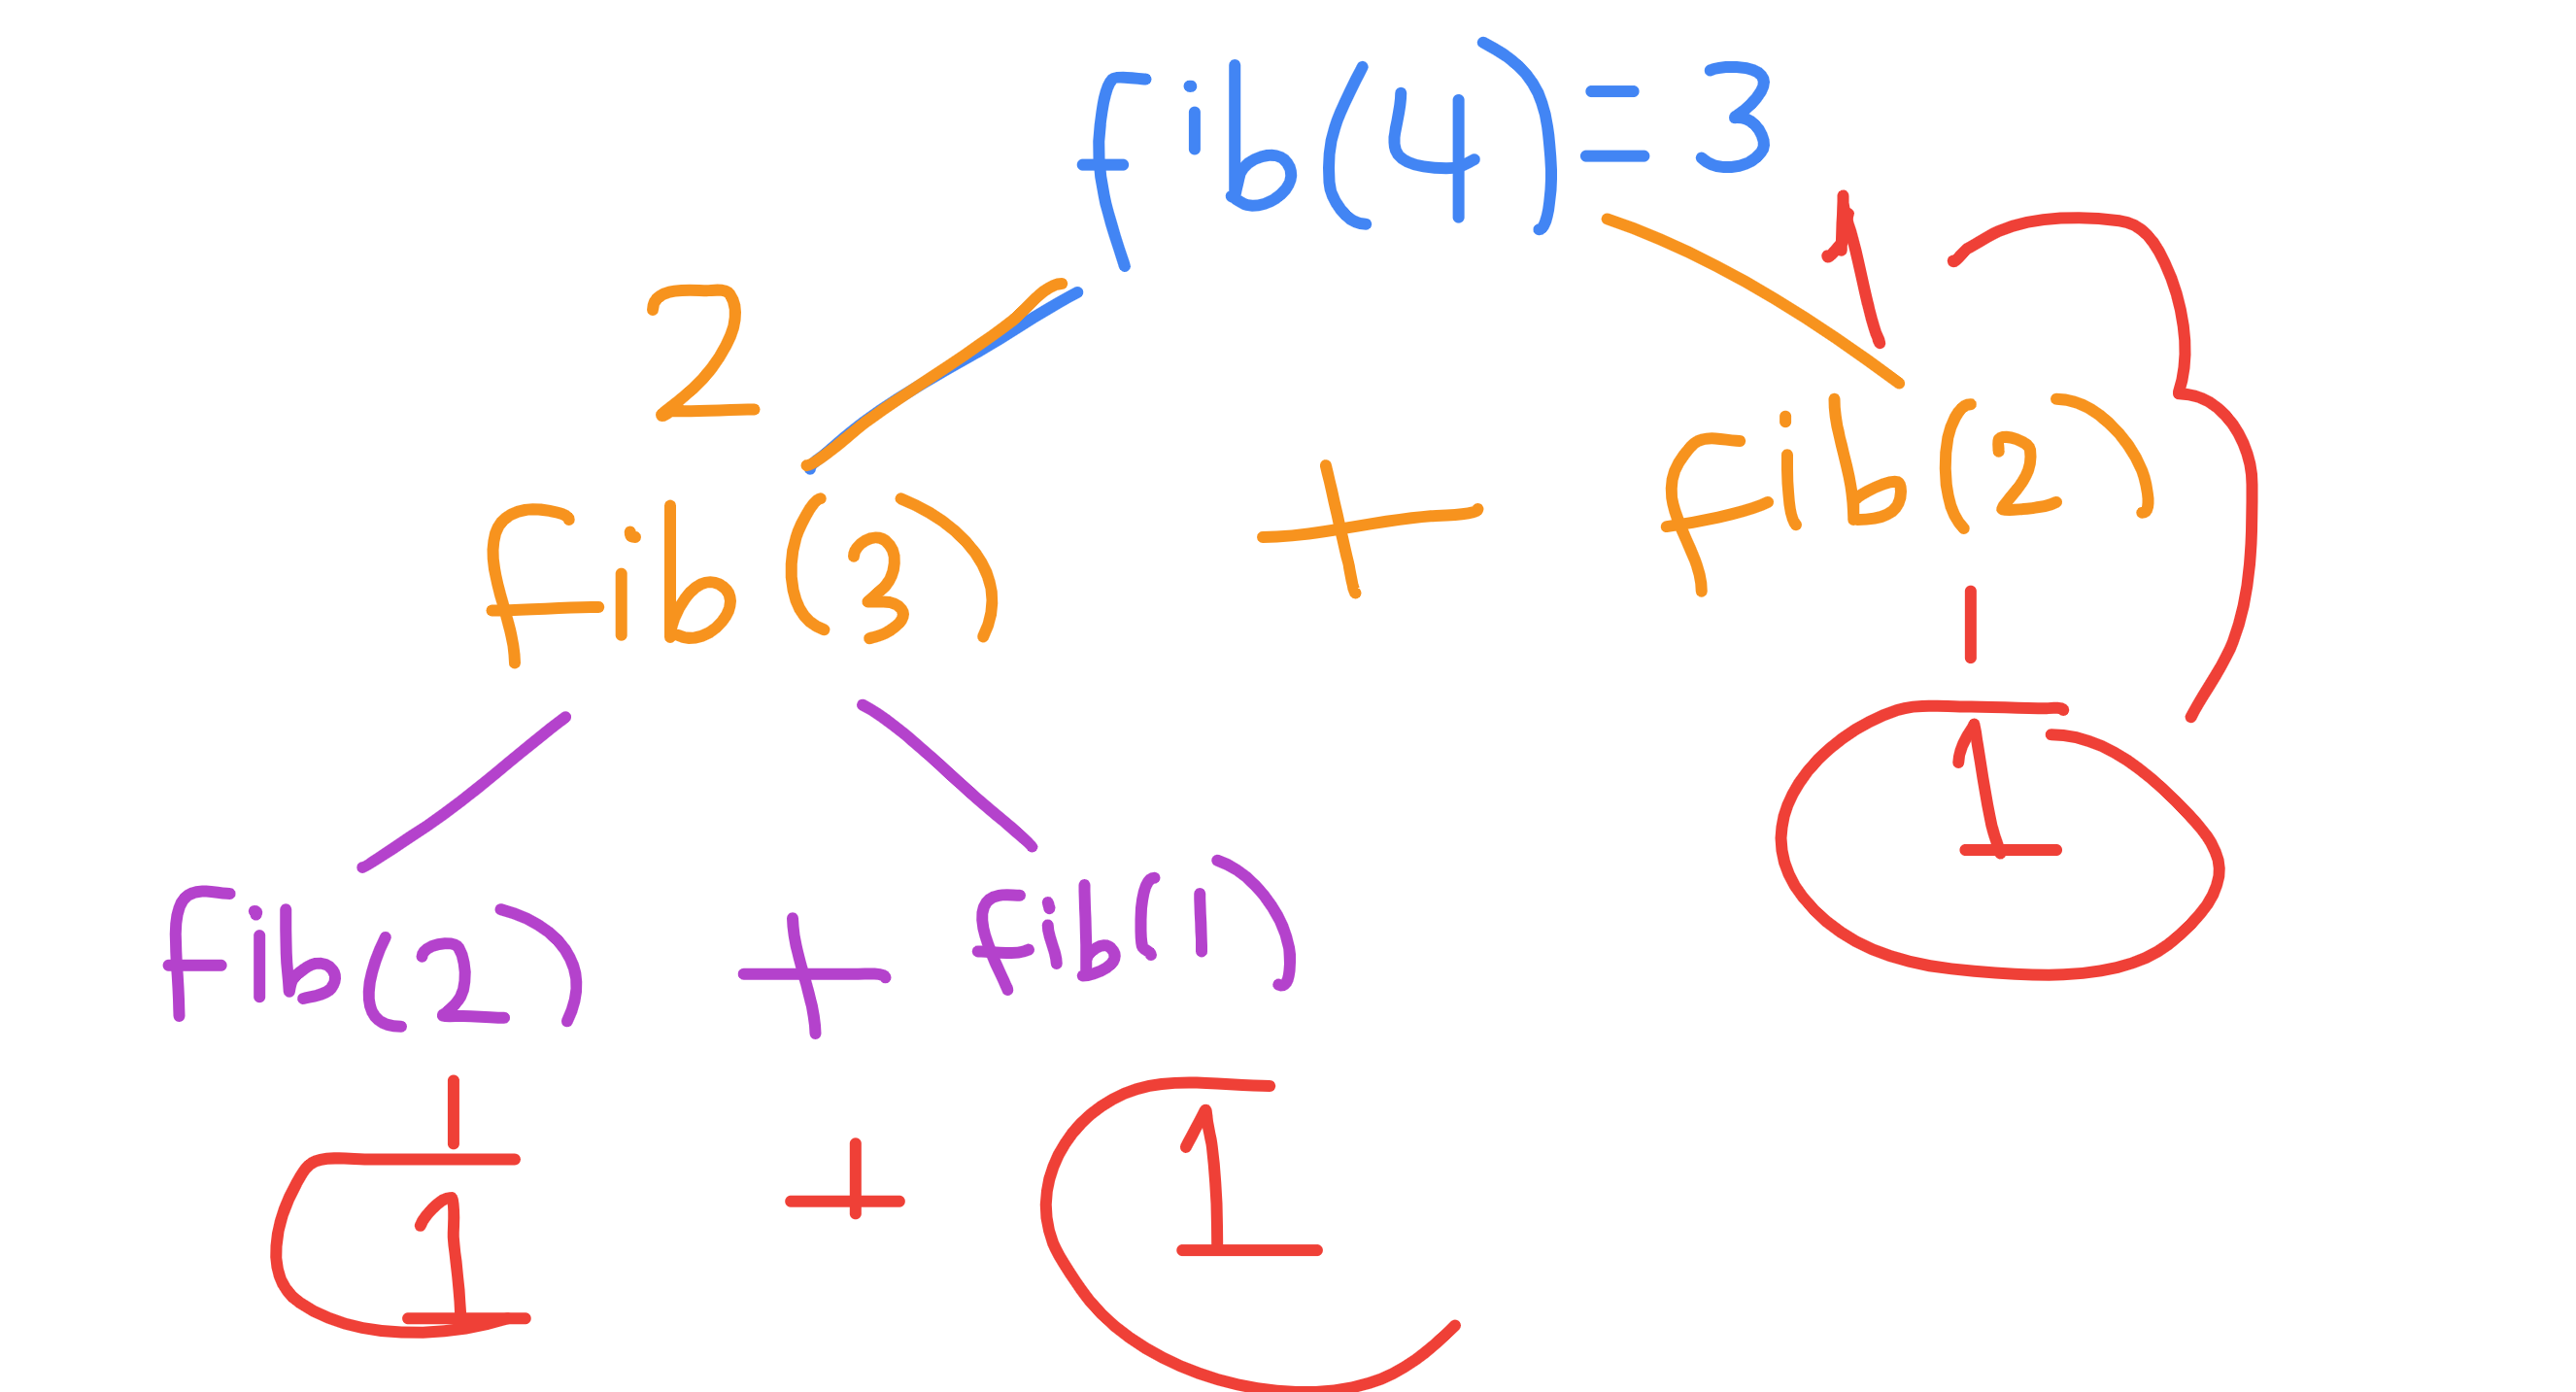 fib(4) = 3
2 1
fib(3) + fib(2)
1
fib(2) + fib(1)
1 + 1